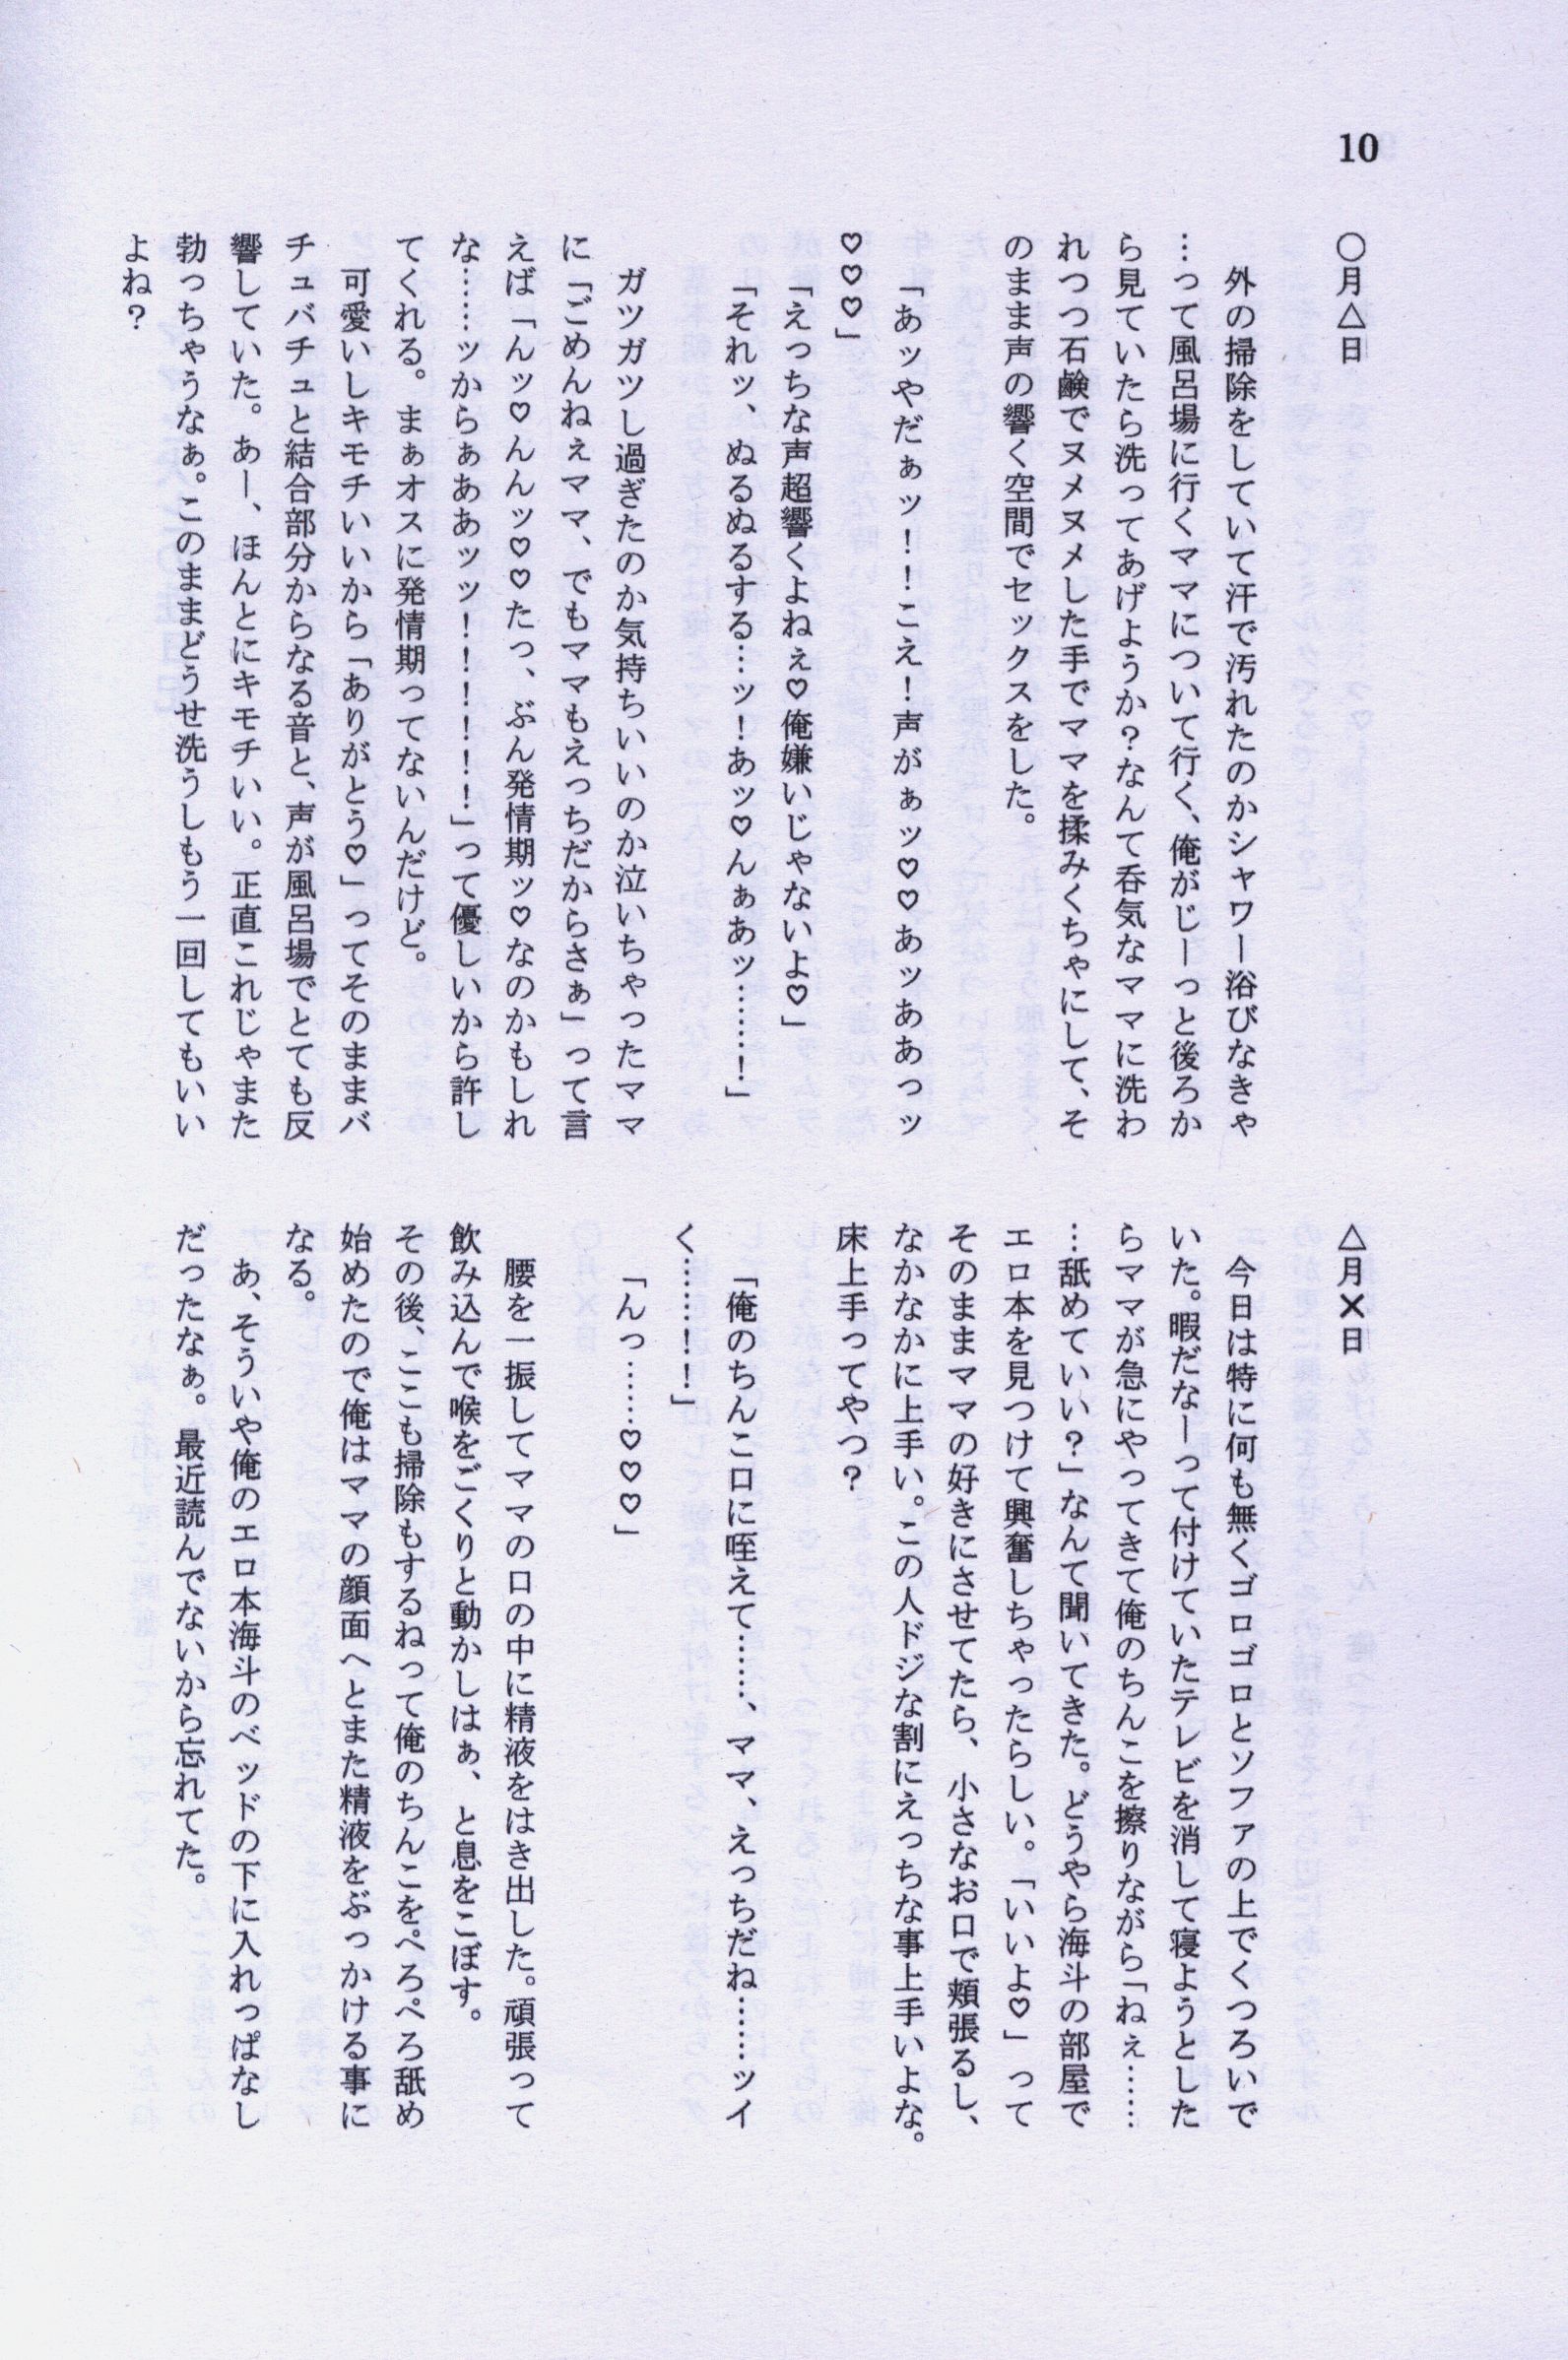 10
〇月△日
外の掃除をしていて汗で汚れたのかシャワー浴びなきゃ
…って風呂場に行くママについて行く、俺がじーっと後ろか
ら見ていたら洗ってあげようか？なんて呑気なママに洗わ
れつつ石鹸でヌメヌメした手でママを揉みくちゃにして、そ
のまま声の響く空間でセックスをした。
「あッやだぁッ！！こえ！声がぁッ♡♡あッああっッ
♡♡♡」
「えっちな声超響くよねぇ♡俺嫌いじゃないよ♡」
「それッ、ぬるぬるする…ッ！あッ♡んぁあッ……！」
ガツガツし過ぎたのか気持ちいいのか泣いちゃったママ
に「ごめんねぇママ、でもママもえっちだからさぁ」って言
えば「んッ♡んんッ♡♡たっ、ぶん発情期ッ♡なのかもしれ
な……ッからぁああッッ！！！！！！」って優しいから許し
てくれる。まぁオスに発情期ってないんだけど。
可愛いしキモチいいから「ありがとう♡」ってそのままバ
チュバチュと結合部分からなる音と、声が風呂場でとても反
響していた。あー、ほんとにキモチいい。正直これじゃまた
勃っちゃうなぁ。このままどうせ洗うしもう一回してもいい
よね？
△月✕日
今日は特に何も無くゴロゴロとソファの上でくつろいで
いた。暇だなーって付けていたテレビを消して寝ようとした
らママが急にやってきて俺のちんこを擦りながら「ねぇ……
…舐めていい？」なんて聞いてきた。どうやら海斗の部屋で
エロ本を見つけて興奮しちゃったらしい。「いいよ♡」って
そのままママの好きにさせてたら、小さなお口で頬張るし、
なかなかに上手い。この人ドジな割にえっちな事上手いよな。
床上手ってやつ？
「俺のちんこ口に咥えて……、ママ、えっちだね……ッイ
く……！！」
「んっ……♡♡♡」
腰を一振してママの口の中に精液をはき出した。頑張って
飲み込んで喉をごくりと動かしはぁ、と息をこぼす。
その後、ここも掃除もするねって俺のちんこをぺろぺろ舐め
始めたので俺はママの顔面へとまた精液をぶっかける事に
なる。
あ、そういや俺のエロ本海斗のベッドの下に入れっぱなし
だったなぁ。最近読んでないから忘れてた。